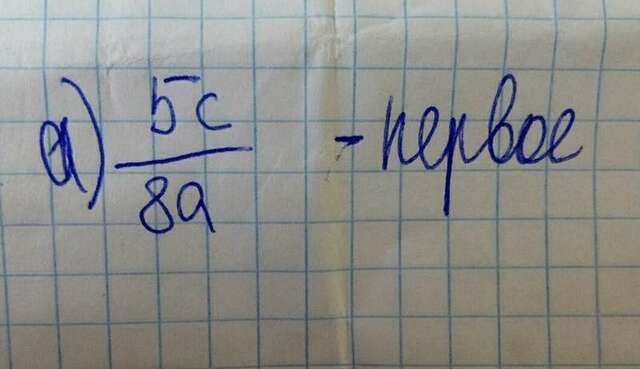 а) 5с/8а - первое